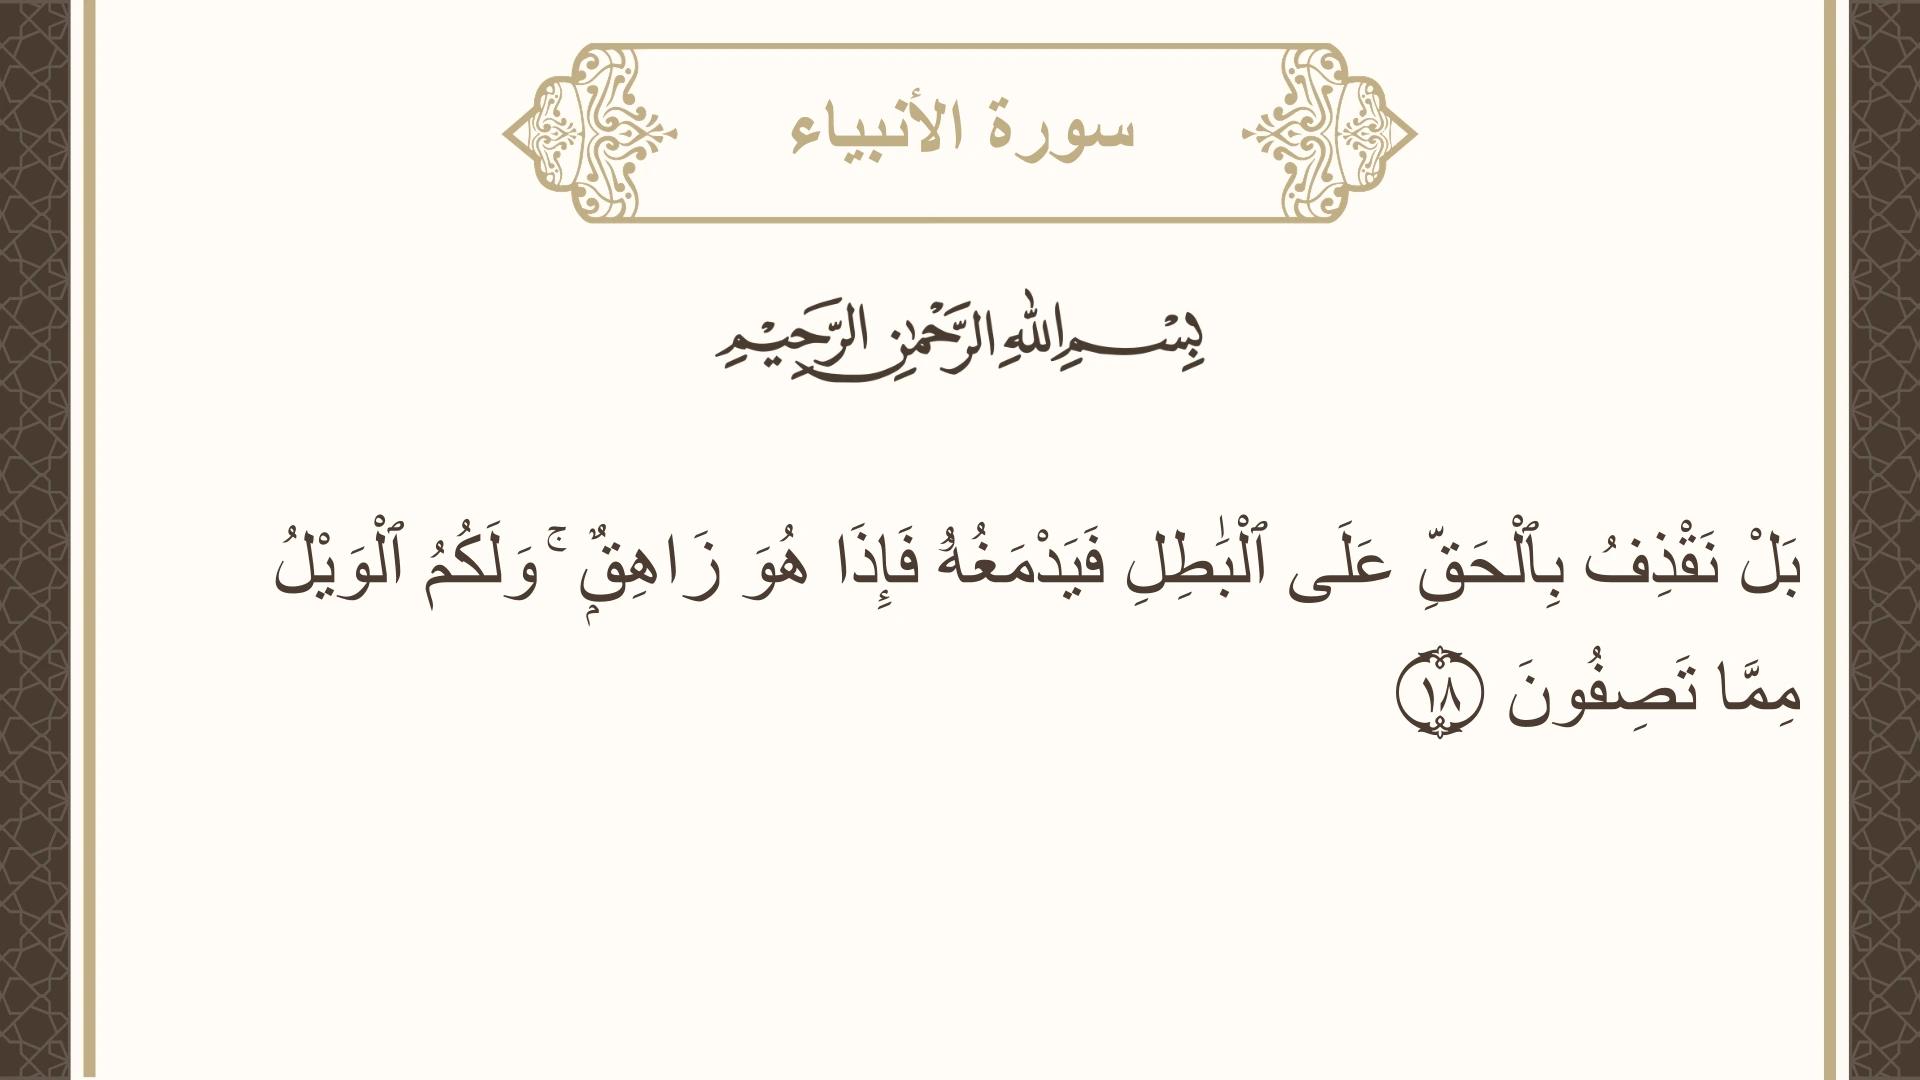 سورة الأنبياء
بِسْمِ اللهِ الرَّحْمٰنِ الرَّحِيْمِ
بَلْ نَقْذِفُ بِٱلْحَقِّ عَلَى ٱلْبَٰطِلِ فَيَدْمَغُهُۥ فَإِذَا هُوَ زَاهِقٌۭ ۚ وَلَكُمُ ٱلْوَيْلُ
مِمَّا تَصِفُونَ ١٨